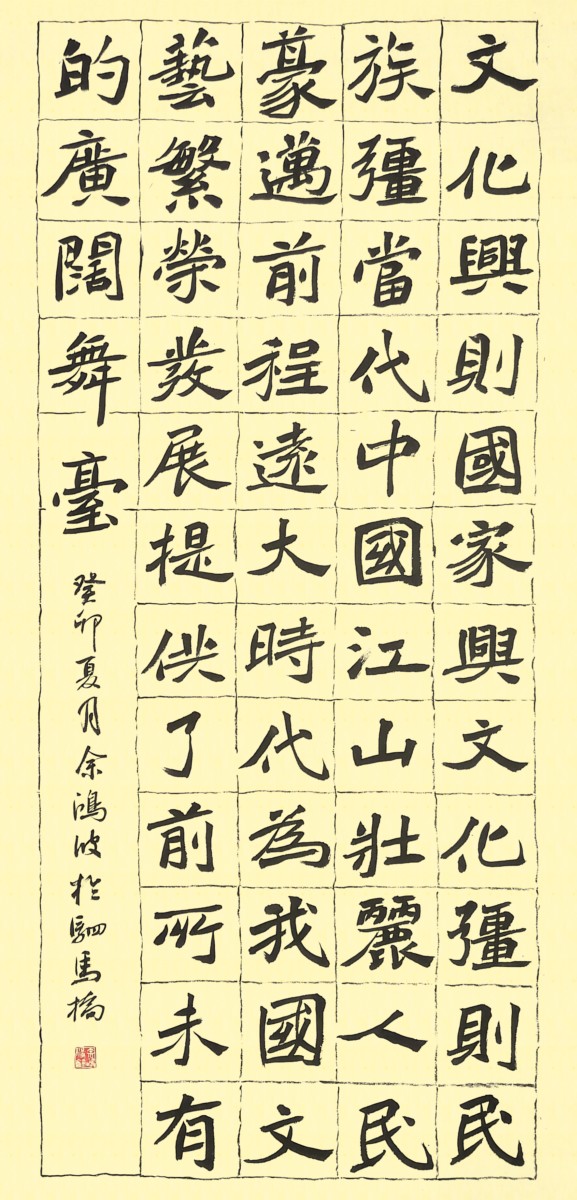 文化興則國家興文化彊則民
族彊當代中國江山壯麗人民
豪邁前程遠大時代為我國文
藝繁榮發展提供了前所未有
的廣闊舞臺
癸卯夏月余鴻波於駟馬橋